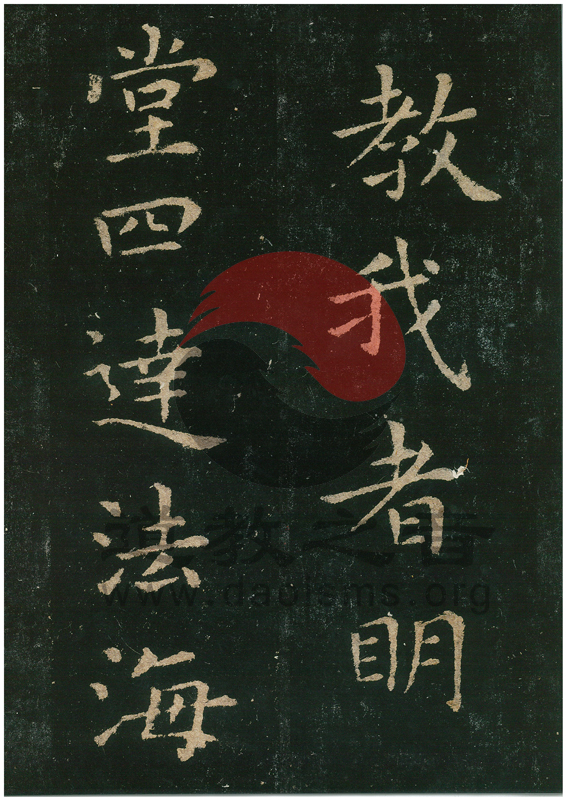 教我者明
堂四達法海
道教之音
www.daoisms.org